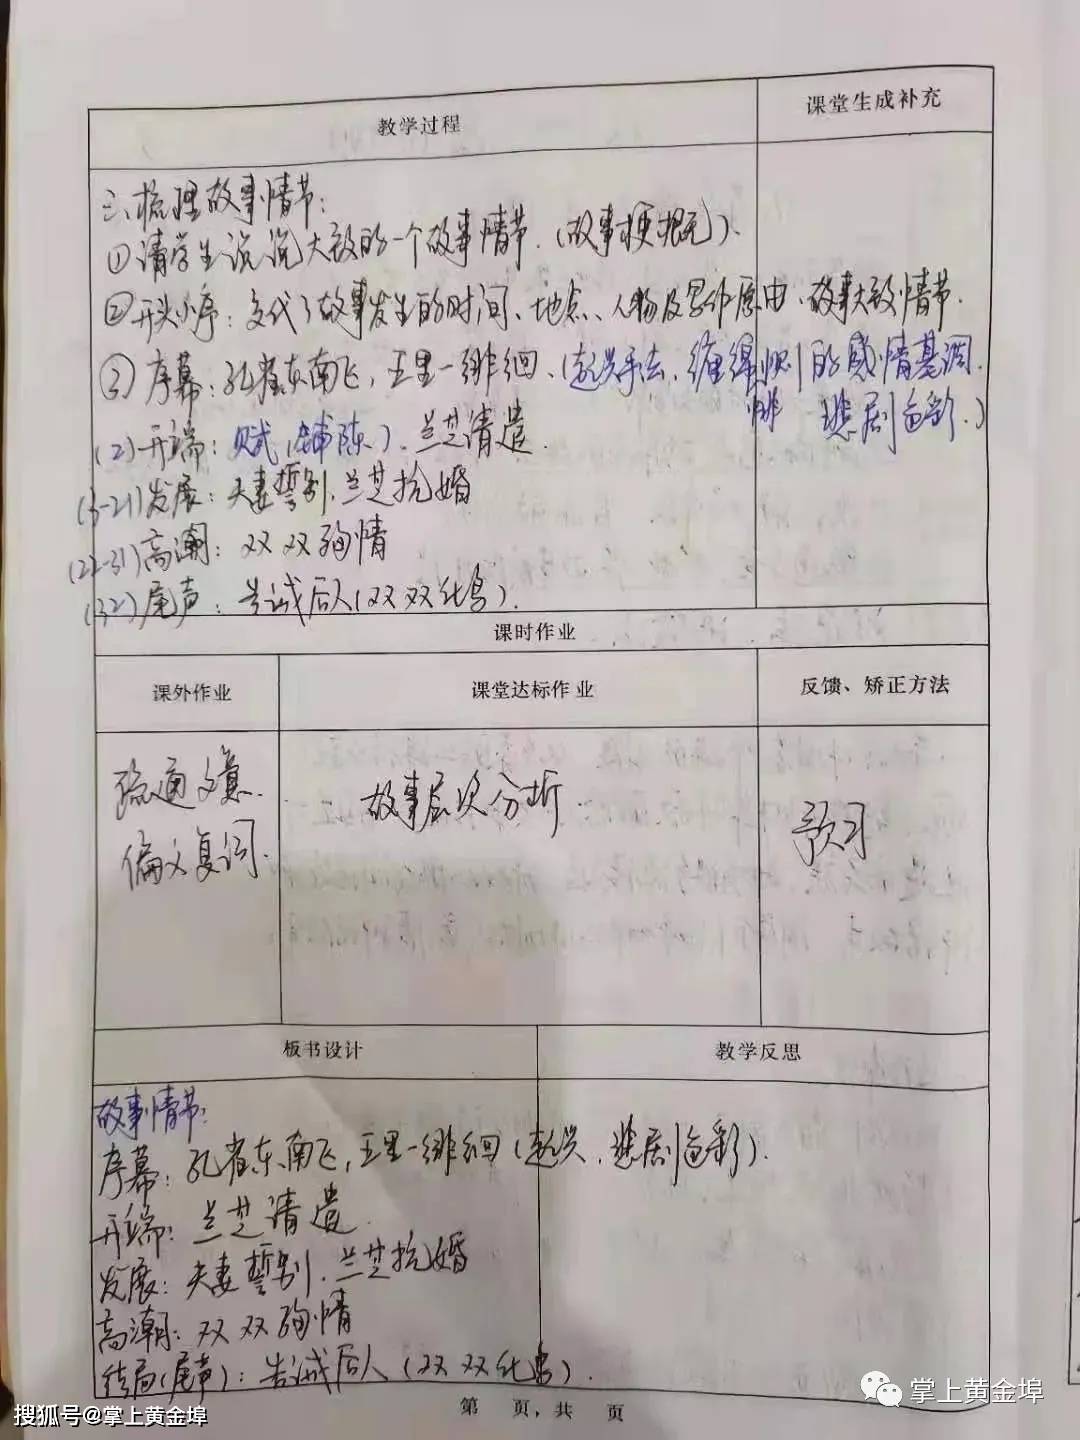 教学过程
课堂生成补充
三、梳理故事情节:
①请学生说说大致的一个故事情节.(故事梗概).
②开头小序:交代了故事发生的时间、地点、人物及写作原由、故事大致情节.
③序幕:孔雀东南飞,五里一徘徊、(起兴手法,缠绵悱恻的感情基调.
悲剧色彩.)
(2)开端:赋(铺陈).兰芝请遣.
(3-21)发展:夫妻誓别.兰芝抗婚
(22-31)高潮:双双殉情
(32)尾声:告诫后人(双双化鸟).
课时作业
课外作业
课堂达标作业
反馈、矫正方法
疏通文意.
偏义复词.
故事层次分析.
预习
板书设计
教学反思
故事情节:
序幕:孔雀东南飞,五里一徘徊(起兴.悲剧色彩).
开端:兰芝请遣.
发展:夫妻誓别.兰芝抗婚
高潮:双双殉情
结局(尾声):告诫后人(双双化鸟).
第 页,共 页
搜狐号@掌上黄金埠
掌上黄金埠